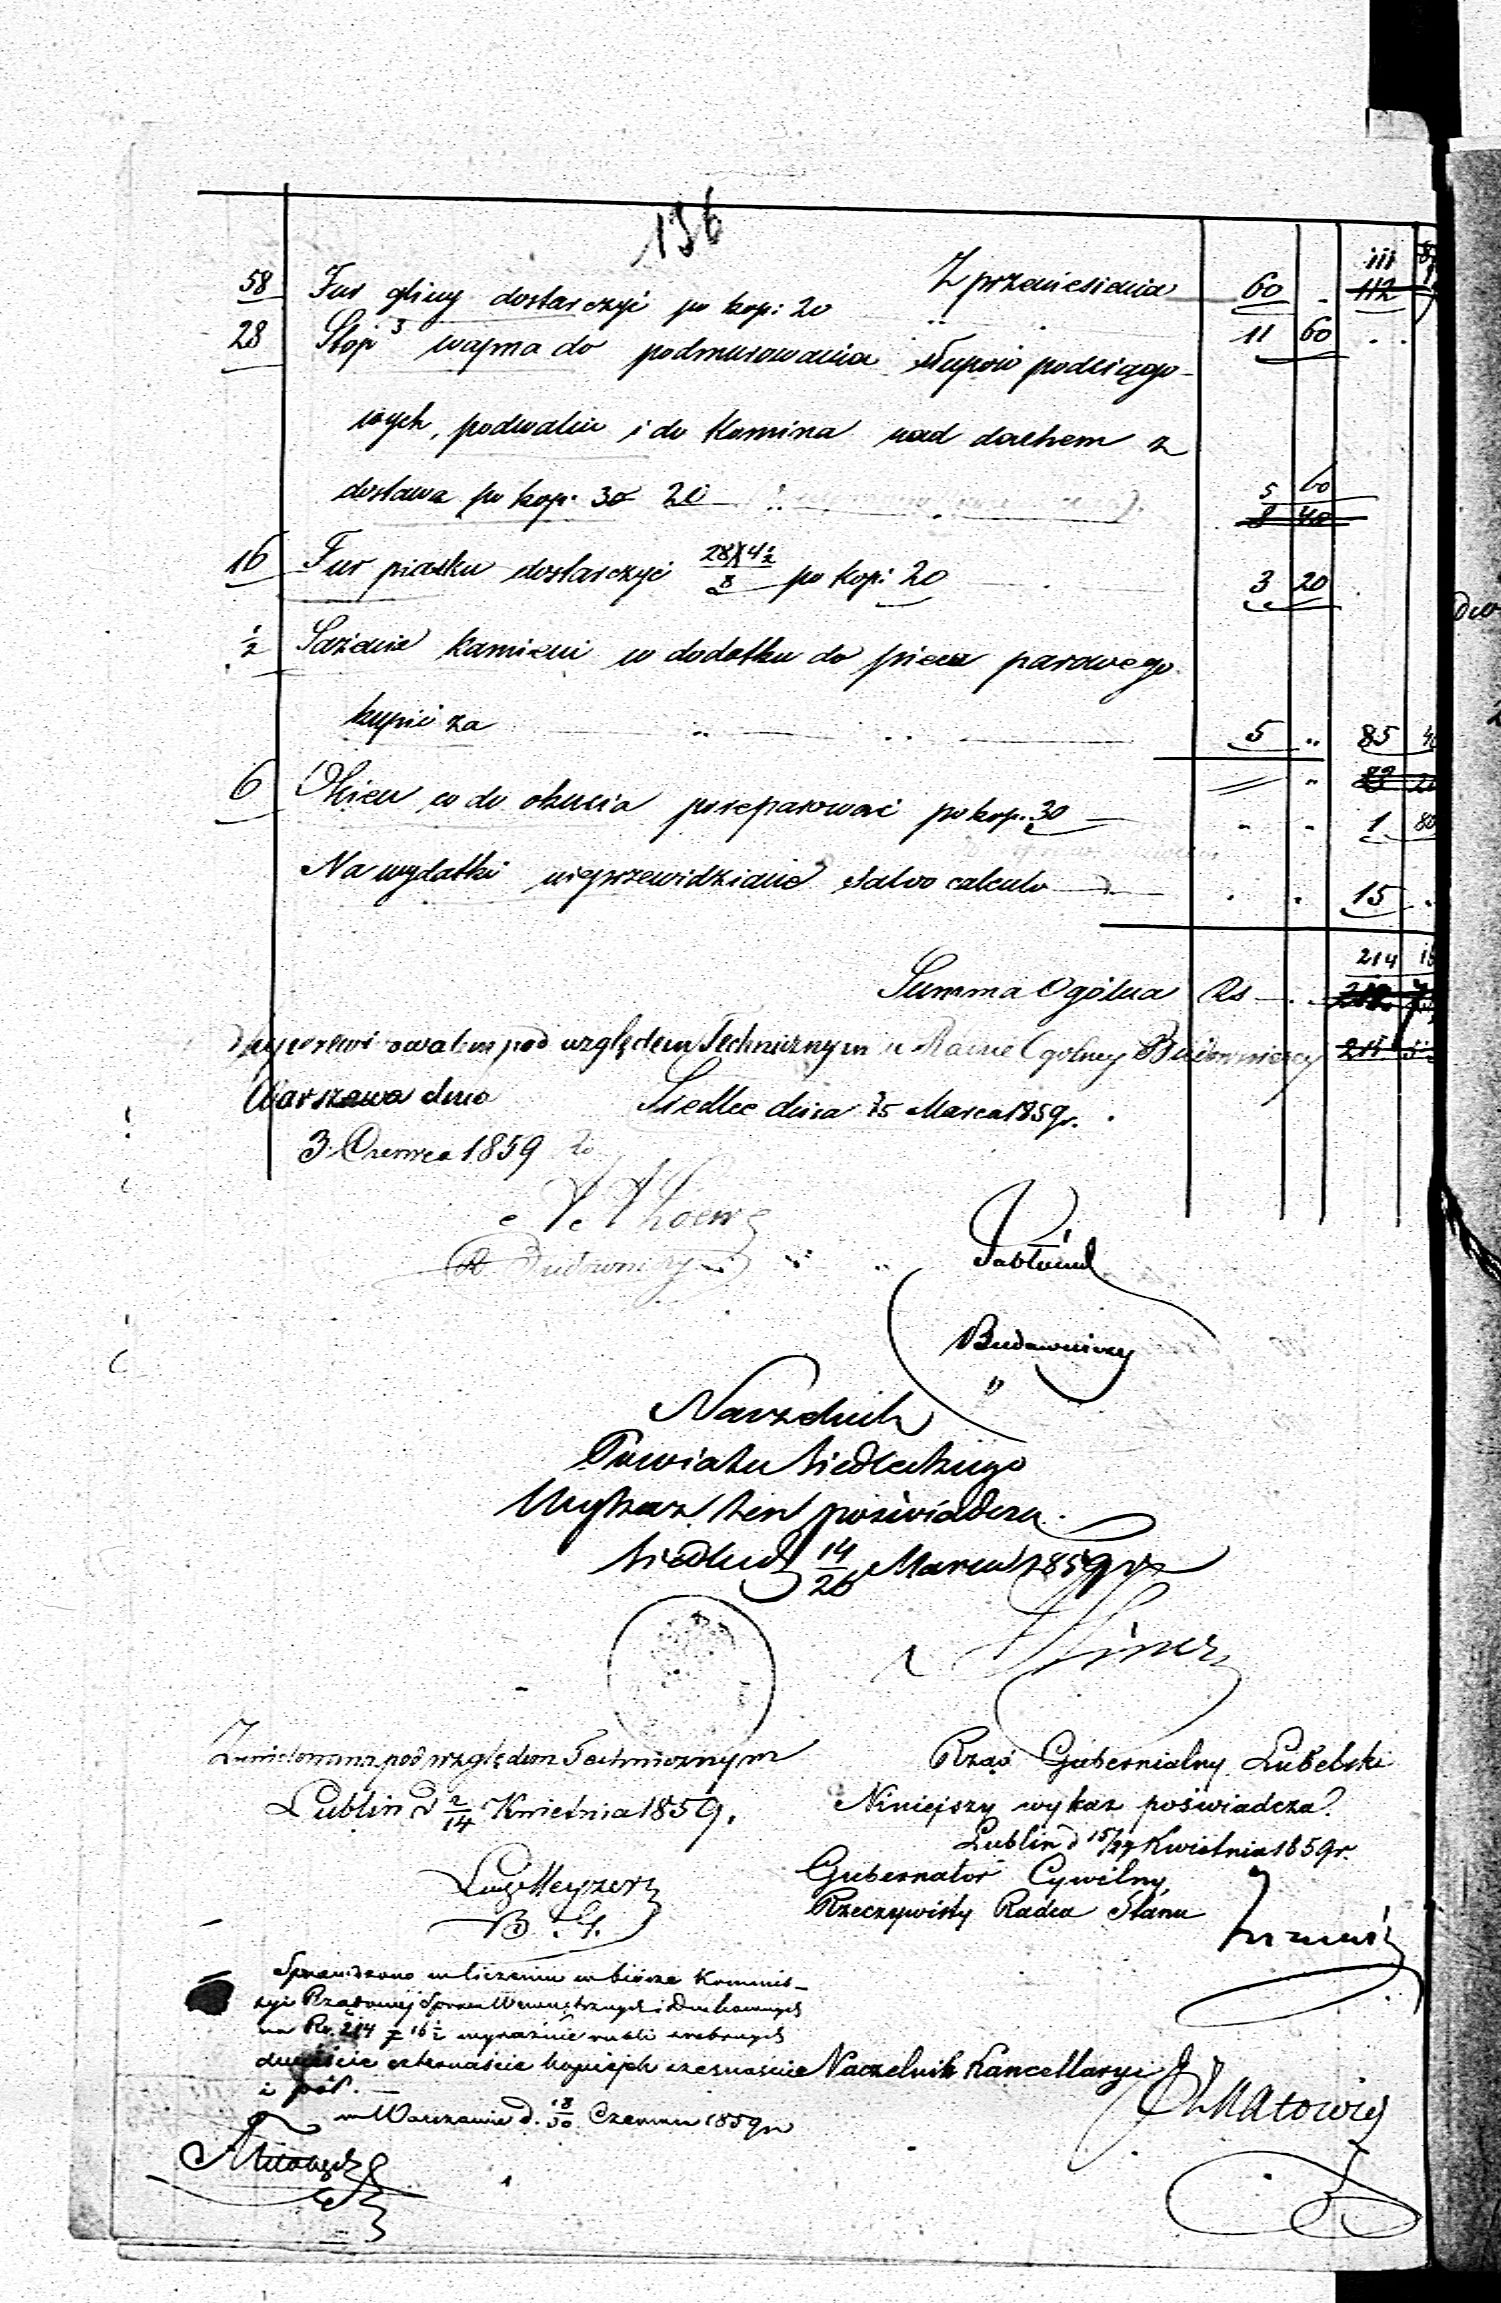 136
Z przeniesienia 60 . 111
112
58 Fur gliny dostarczyć po kop: 20 11 60 . .
28 Stóp 3 wapna do podmurowania słupów podciągo-
wych, podwalin i do komina nad dachem z
dostawą po kop. 30 20 5 60
8 40
16 Fur piasku dostarczyć 28 X 4½ / 8 po kop: 20 3 20
½ Sążnia kamieni w dodatku do pieca parowego
kupić za 5 " 85 40
83 20
6 Okien co do okucia poreparować po kop. 30 1 80
Na wydatki nieprzewidziane salvo calculo 15 .
214 16
Summa Ogólna Rs
pod względem Technicznym w Radzie Ogólnej Budowniczej
Warszawa dnia
Siedlce dnia 15 Marca 1859 r.
3 Czerwca 1859
Budowniczy
Budowniczy
Naczelnik
Powiatu Siedleckiego
Wykaz ten poświadcza.
Siedlce d 14/26 Marca 1859 r
pod względem Technicznym
Lublin d 2/14 Kwietnia 1859.
Rząd Gubernialny Lubelski
Niniejszy wykaz poświadcza.
Lublin d 15/27 Kwietnia 1859 r.
Gubernator Cywilny,
Rzeczywisty Radca Stanu
B. G.
Sprawdzono w liczeniu w biórze Kommis-
syi Rządowej Spraw Wewnętrznych i Duchownych
na Rs. 214 k 16½ wyraźnie rubli srebrnych
dwieście czternaście kopiejek szesnaście
i pół.
w Warszawie d. 18/30 Czerwca 1859 r
Naczelnik Kancellaryi